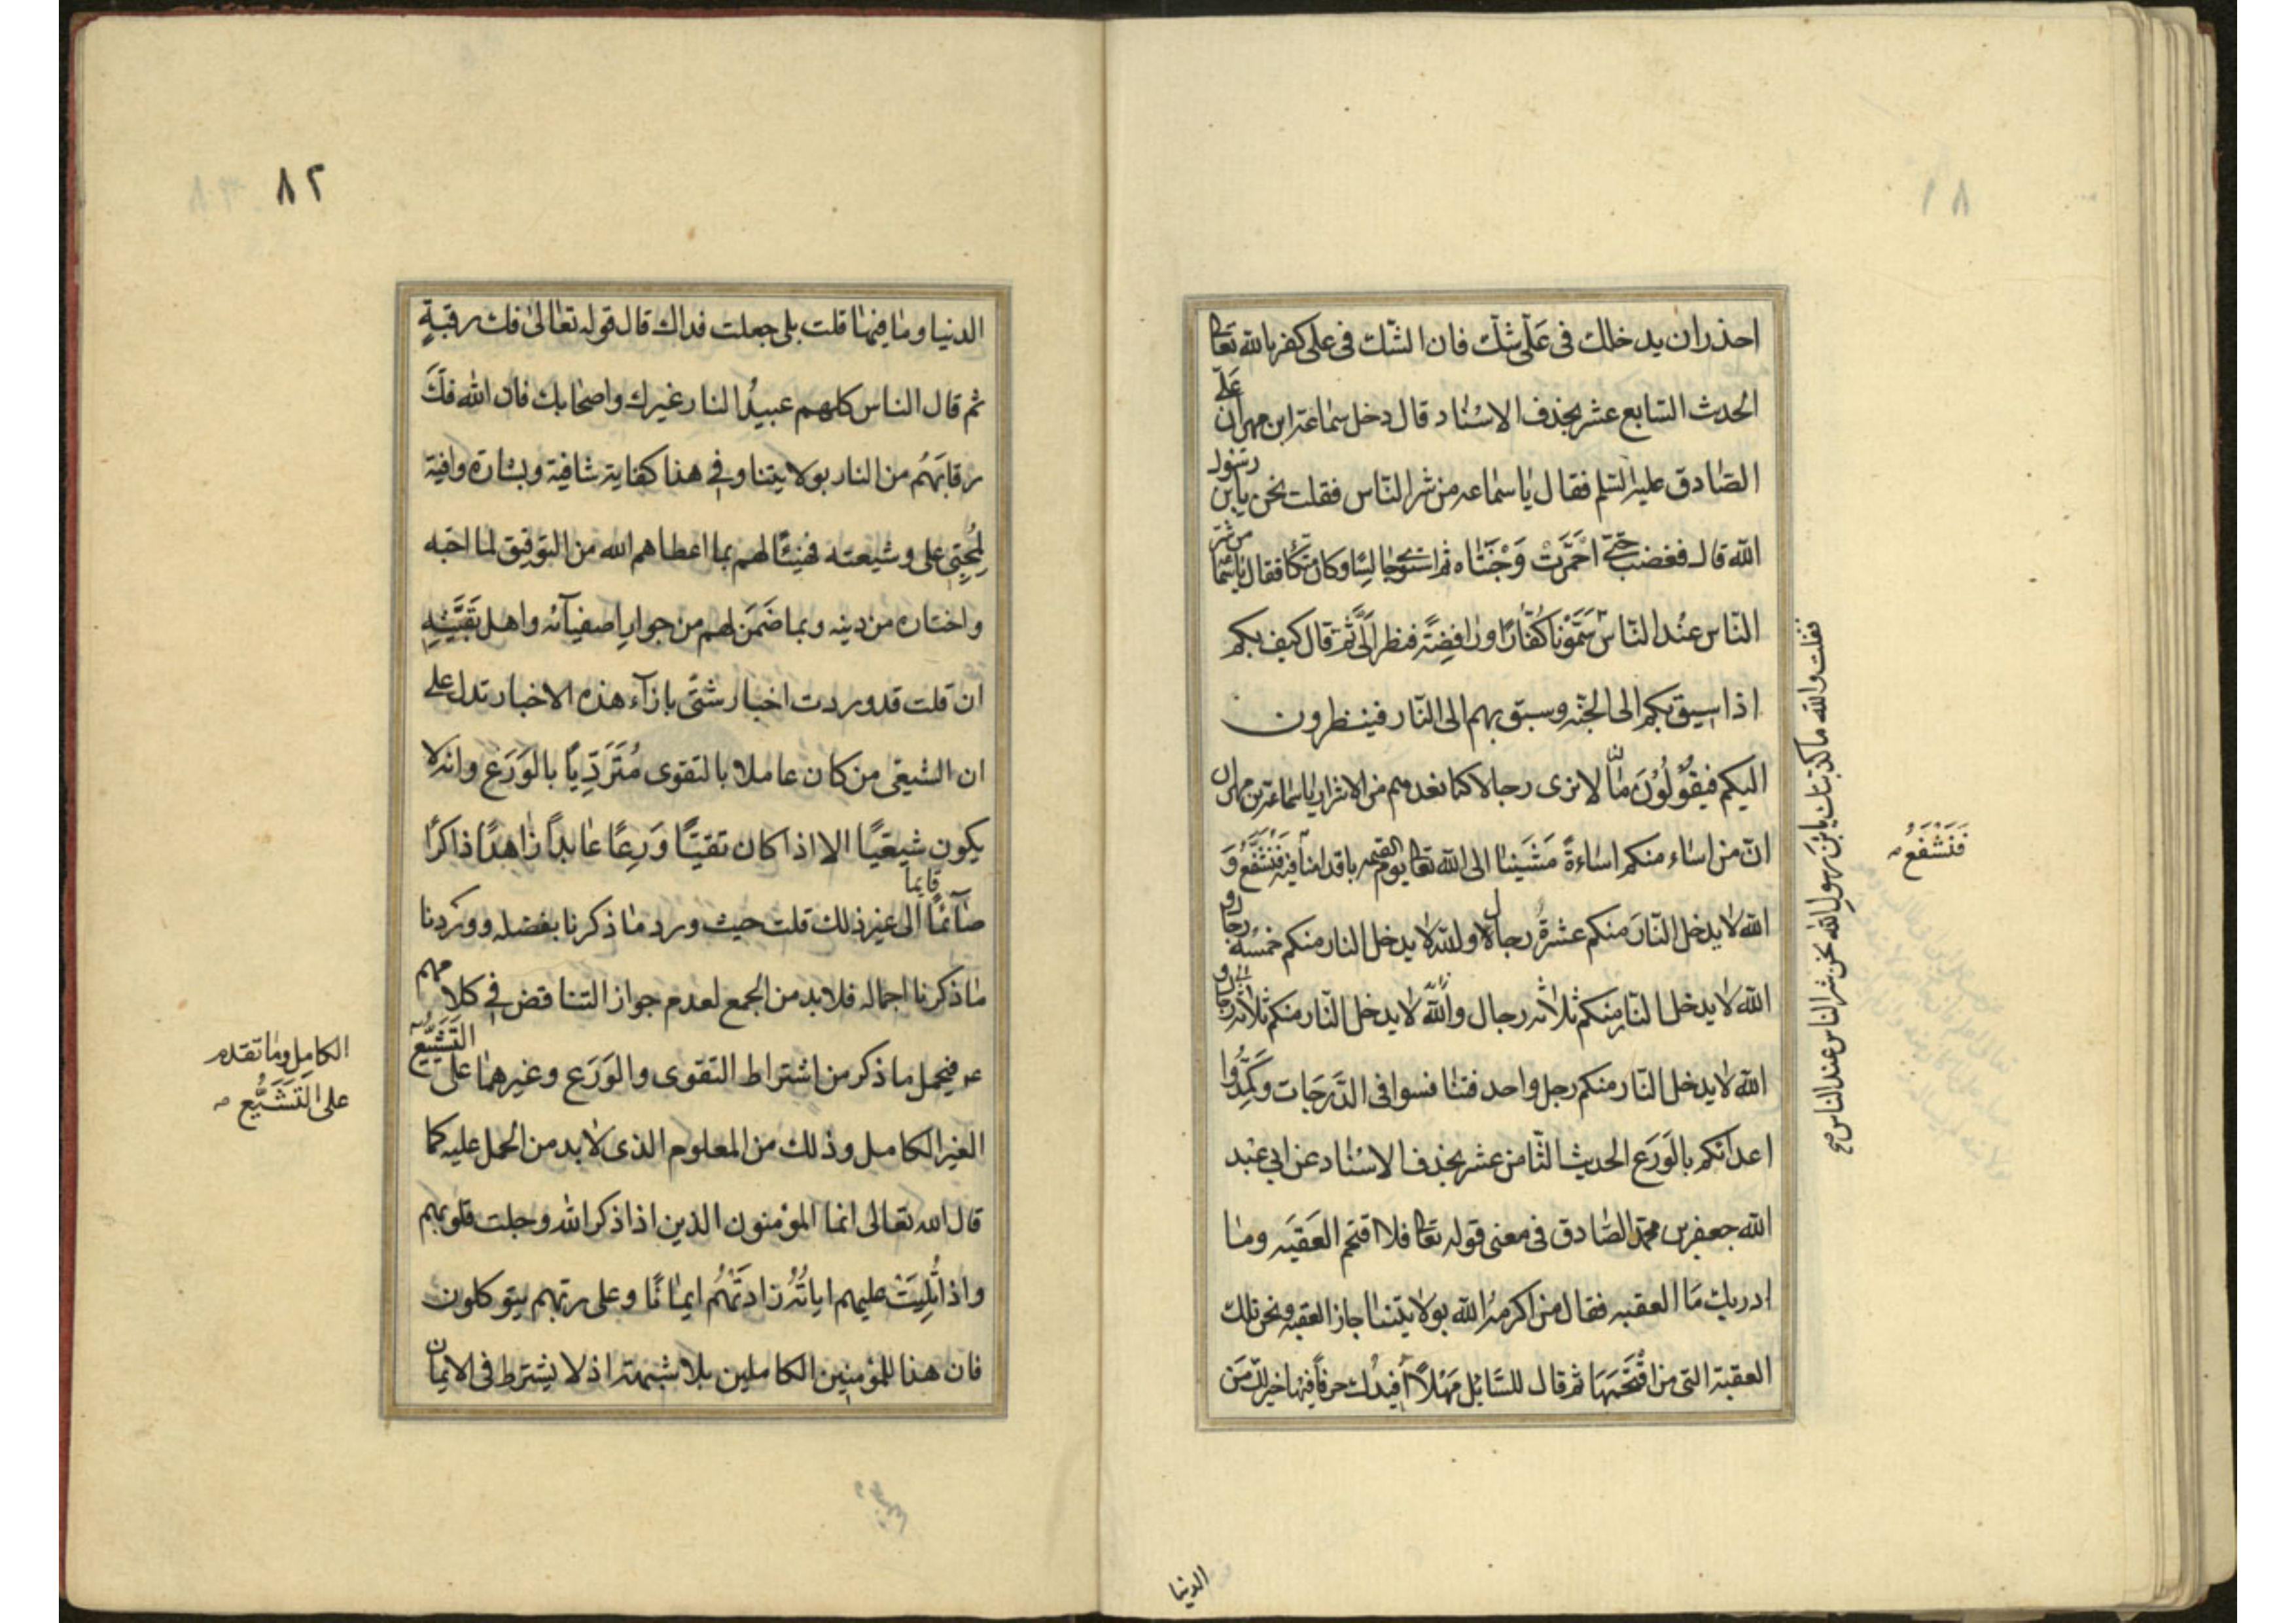 ٨١
احذر ان يدخلك فى عَلّى شك فان الشك فى على كفر بالله تعا
الحدث السابع عشر بحذف الاسناد قال دخل سماعة ابن مهران عَلَى
الصادق عليه السلم فقال يا سماعه من شر الناس فقلت نحن يابن رسول
الله قال فغضب حتى احْمَرَّتْ وَجْنَتاه ثم استوى جالسا وكان متكأ فقال يا سماعه من شر
الناس عند الناس سَمَّوْنا كُفّارًا ورافِضِةً فنظر اِلَىَّ ثُمّ قال كيف بكم
اذا سيق بكم الى الجنّه وسيق بهم الى النّار فينظرون
اليكم فيقُولُوْنَ مالنا لا نرى رجالا كنا نعدهم من الاشرار يا سماعة بن مهران
انّ من اساء منكم اساءةً مَشَينا الى الله تعا يوم القيمه باقدامنا فيه فَنَشْفَعُ وَ
الله لا يدخل النّارَ منكم عشرةُ رجال والله لا يدخل النار منكم خمسة رجال و
الله لا يدخل النّار منكم ثلاثه رجال والله لا يدخل النّار منكم ثلاثة رجال و
الله لا يدخل النّار منكم رجل واحد فتنافسوا فى الدَّرَجَات وكَمِّدُوا
اعدائكم بالوَرَع الحديث الثّامن عشر بحذف الاسْناد عن ابي عبْد
الله جعفر بن محمد الصّادق فى معنى قوله تعا فلا اقتحم العَقَبَه وما
ادريك مَا العقبه فقال من اكرمهُ الله بولايَتنا جاز العقبه ونحن تلك
العقبة التى من اقْتَحَمَهَا ثم قال للسّائل مَهْلاً اُفيدُك حرفاً فيها خير لك مَن
فقلت والله ما كذبتك يا بْنَ رسول الله نحن شر الناس عند الناس صح
فَنَشْفَعُ
الدنيا
٨٢
الدنيا وما فيها قلت بلى جعلت فداك قال قوله تعالىٰ فك رقبةٍ
ثم قال الناس كلهم عبيدُ النار غيرك واصحابك فان الله فَكَّ
رقابَهُم من النار بولايتنا وفي هذا كفاية شافية وبشارة وافية
لِمُحِبّى على وشيعته فهنيئًا لهم بما اعطاهم الله من التوفيق لما احبّه
واختاره من دينه وبما ضَمَنَ لهم من جوار اصفيآئه واهل
ان قلت قد وردت اخبار شتّى بازآء هذه الاخبار تدل على
ان الشيعى من كان عاملا بالتقوى مُتَرَدِّياً بالوَرَع وانه لا
يكون شيعيًا الا اذا كان تقيًا وَرِعًا عابداً زاهدًا ذاكرًا
صآئمًا قايماً الى غير ذلك قلت حيث ورد ما ذكرنا بفضله وورد نا
ما ذكرنا اجماله فلا بد من الجمع لعدم جواز التناقض في كلامهم
عم فيحمل ما ذكر من اشتراط التقوى والوَرَع وغيرهما على التَشَيُّع
الغير الكامل وذلك من المعلوم الذى لا بد من الحمل عليه كما
قال الله تعالى انما المؤمنون الذين اذا ذكر الله وجلت قلوبهم
واذا تُلِيَتْ عليهم اياتُهُ زادَتْهُم ايمانًا وعلى ربّهم يتوكلون
فان هذا للمؤمنين الكاملين بلا شبهة اذ لا يشترط فى الايمان
الكامِل وما تقدم
على التَشَيُّع